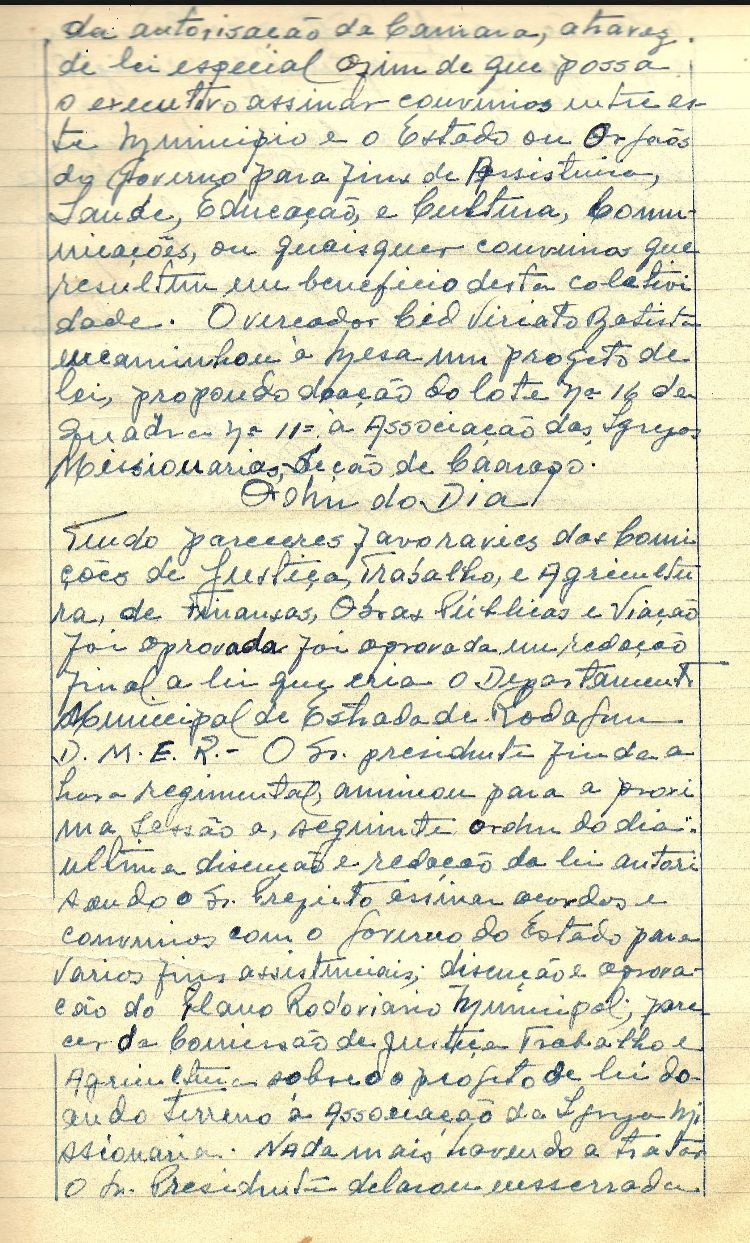 da autorisação da Camara, atravez
de lei especial afim de que possa
o executivo assinar convinios entre es-
te Municipio e o Estado ou Orgãos
do Governo para fins de Assistencia,
Saude, Educação, e Cultura, Comu-
nicações, ou quaisquer convinios que
resultem em beneficio desta coletivi
dade. O vereador Cid Viriato Batista
encaminhou à Mesa um projeto de
lei, propondo doação do lote nº 16 da
quadra nº 11= à Associação das Igrejas
Missionarias, seção de
Ordem do Dia
Tendo pareceres favoraveis das Comi
ções de Justiça, Trabalho, e Agricultu
ra, de Finansas, Obras Públicas e Viação
foi aprovada foi aprovada em redação
final a lei que cria o Departamento
Municipal de Estrada de Rodagem
D. M. E. R.- O Sr. presidente finda a
hora regimental, anunciou para a proxi
ma Sessão a, seguinte ordem do dia:
ultima discução e redação da lei autori
sando o Sr. Prefeito assinar acordos e
convinios com o Governo do Estado para
varios fins assistenciais; discução e aprova-
ção do Plano Rodoviario Municipal; pare-
cer da Comissão de Justiça Trabalho e
Agricultura sobre o o projeto de lei do-
ando terreno à Associação da Igreja Mi
ssionaria. Nada mais havendo a tratar
O Sr. Presidente delarou ensserrada